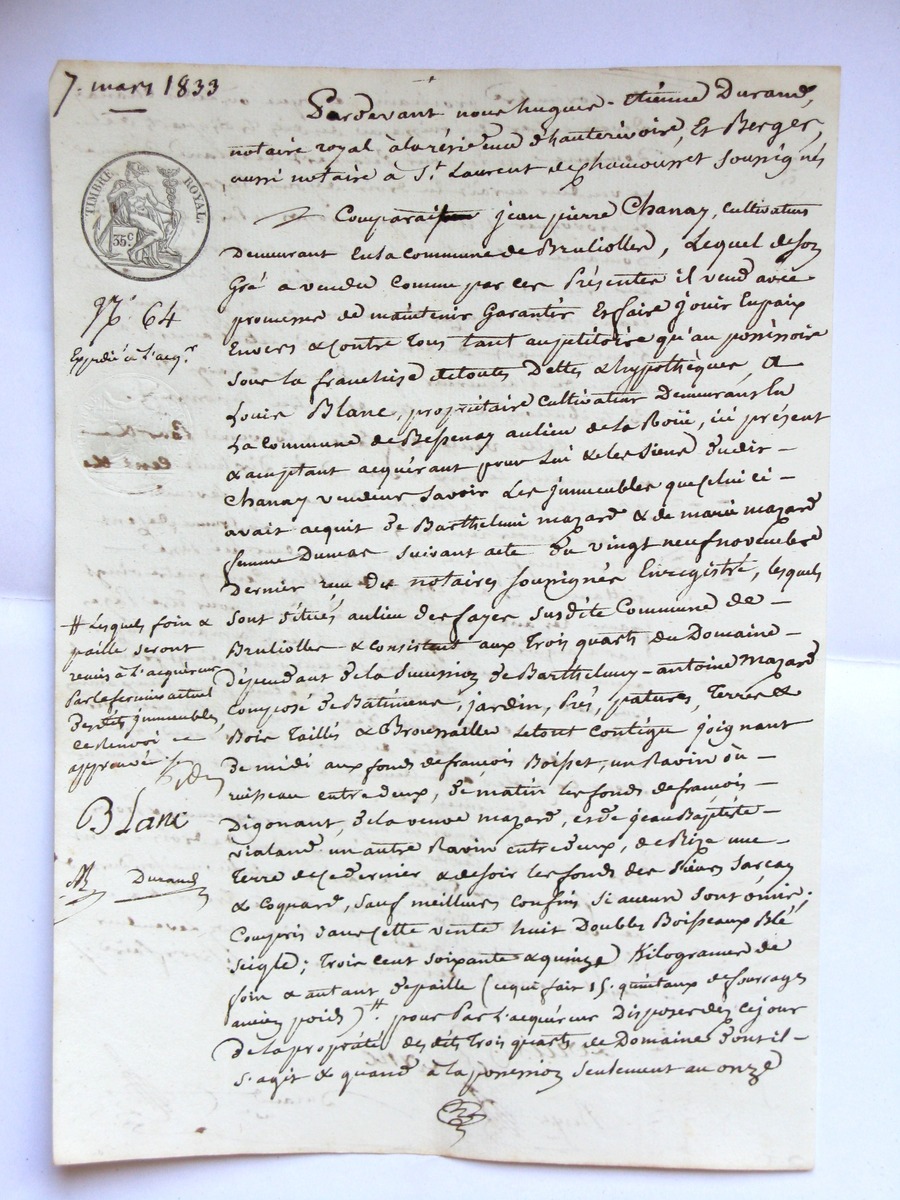 7. mars 1833
Pardevant nous hugues-étienne Durand,
notaire royal à la résidence d'hauterivoire, Et Berger,
aussi notaire à St. Laurent de chamousset soussignés
TIMBRE ROYAL
35 c
Comparait jean pierre Chanay, cultivateur
Demeurant En la commune de Brulioller, Lequel de son
Gré a vendu comme par ces Présentes il vend avec
promesse de maintenir Garantir Et faire jouir En paix
Envers & contre Tous tant au pétitoire qu'au possessoire
sous la franchise de toutes Dettes & hypothèques, A
Louis Blanc, propriétaire cultivateur Demeurant En
La commune de Bessenay au lieu de la Roüe, ici présent
& acceptant acquérant pour Lui & les siens du dit
Chanay vendeur savoir Les immeubles que celui ci
avait acquit de Barthelmi mazard & de marie mazard
femme Dumas suivant acte du vingt neuf novembre
Dernier reçu des notaires soussignés Enregistré, lesquels
sont situés au lieu des fayes susdite Commune de
Brulioller & consistent aux Trois quarts du Domaine
Dépendant de la succession de Barthelmy-antoine Mazard
composé de Batimens, jardin, Prés, patures, Terres &
Bois Taillis & Broussailles Le tout contigu joignant
de midi aux fonds de francois Boisset, un Ravin où
ruisseau entre deux, de matin les fonds de francois
Digonant, de la veuve mazard, et de jean Baptiste
vialand un autre Ravin entre deux, de Bize une
Terre de ce dernier & de soir les fonds des sieurs Sarcay
& Coquard, sauf meilleurs confins si aucun sont ômis;
Compris dans cette vente huit Doubles Boisseaux Blé
seigle; Trois cent soixante & quinze Kilogrames de
foin & autant de paille (ce qui fait 15. quintaux de fourrages
ancien poids) # pour Par L'acquéreur Disposer dès ce jour
de la propriété des dits Trois quarts de Domaine dont il
s'agit & quand à la possession seulement au onze
No. 64
Expédié à L'acqr.
# Lesquels foin &
paille seront
remis à L'acquéreur
Par le fermier actuel
des dits immeubles,
ce Renvoi
approuvé
BLanc
Durand